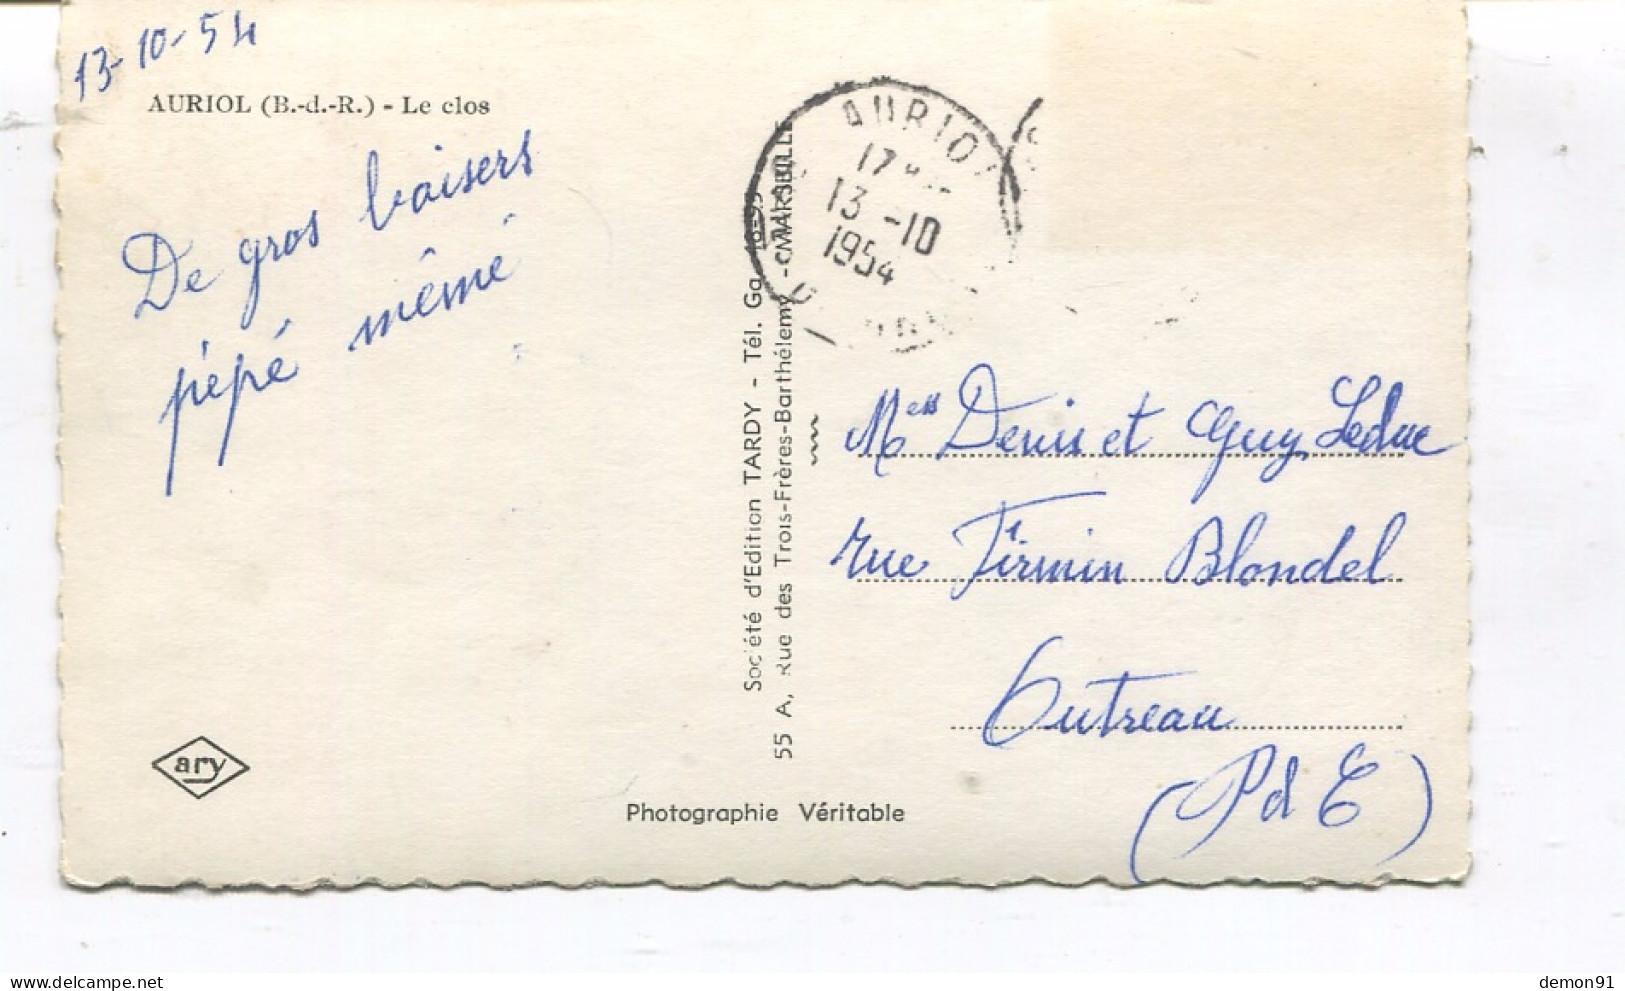 13-10-54
AURIOL (B.-d.-R.) - Le clos
De gros baisers
pépé mémé
ary
Société d'Edition TARDY - Tél. Ga.
55 A, Rue des Trois-Frères-Barthélemy - MARSEILLE
Photographie Véritable
AURIOL
13 -10
1954
Mess Denis et Guy Leduc
rue Firmin Blondel
Outreau
(Pd C)
demon91